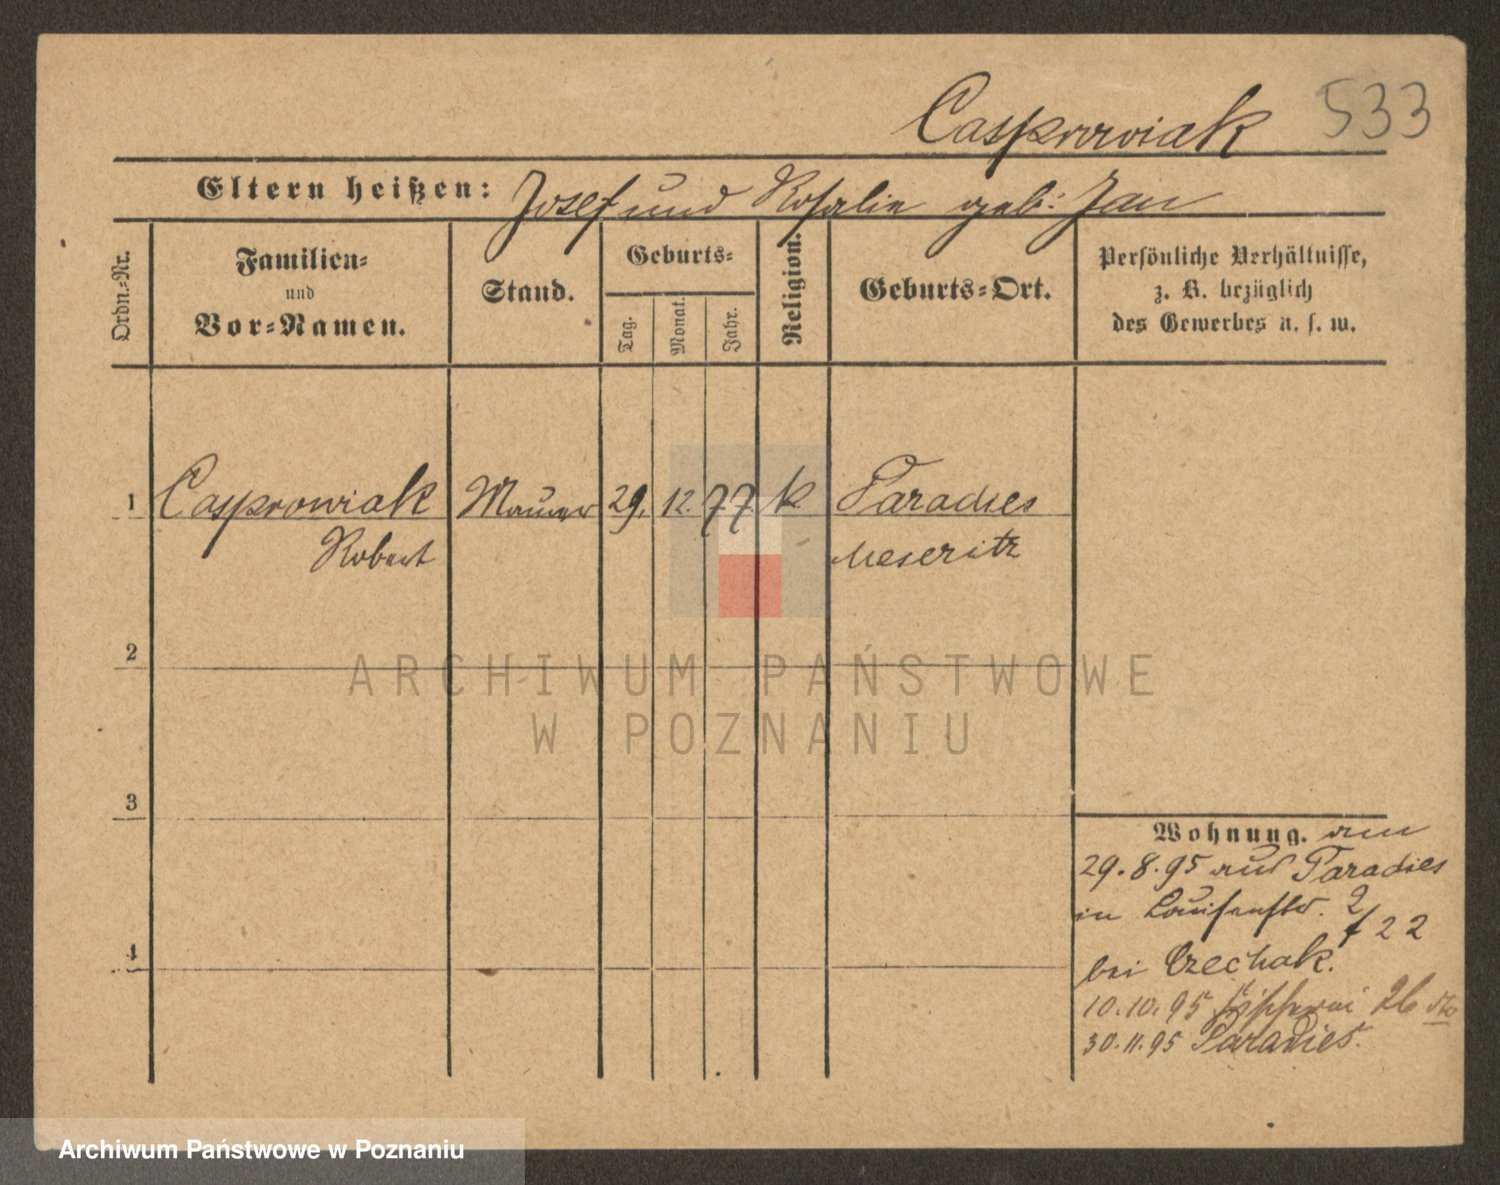 Casprowiak 533
Eltern heißen: Josef und Rosalie geb. Jan
Ordn.-Nr.
Familien-
und
Vor-Namen.
Stand.
Geburts-
Tag.
Monat.
Jahr.
Religion.
Geburts-Ort.
Persönliche Verhältnisse,
z. B. bezüglich
des Gewerbes u. s. w.
1 Casprowiak Maurer 29. 12. 77. k Paradies
Robert Meseritz
2
3
4
Wohnung. am
29.8.95 aus Paradies
in Louisenstr. 2
/22
bei Czechak.
10.10.95 Fischerei 26
30.11.95 Paradies.
ARCHIWUM PAŃSTWOWE
W POZNANIU
Archiwum Państwowe w Poznaniu